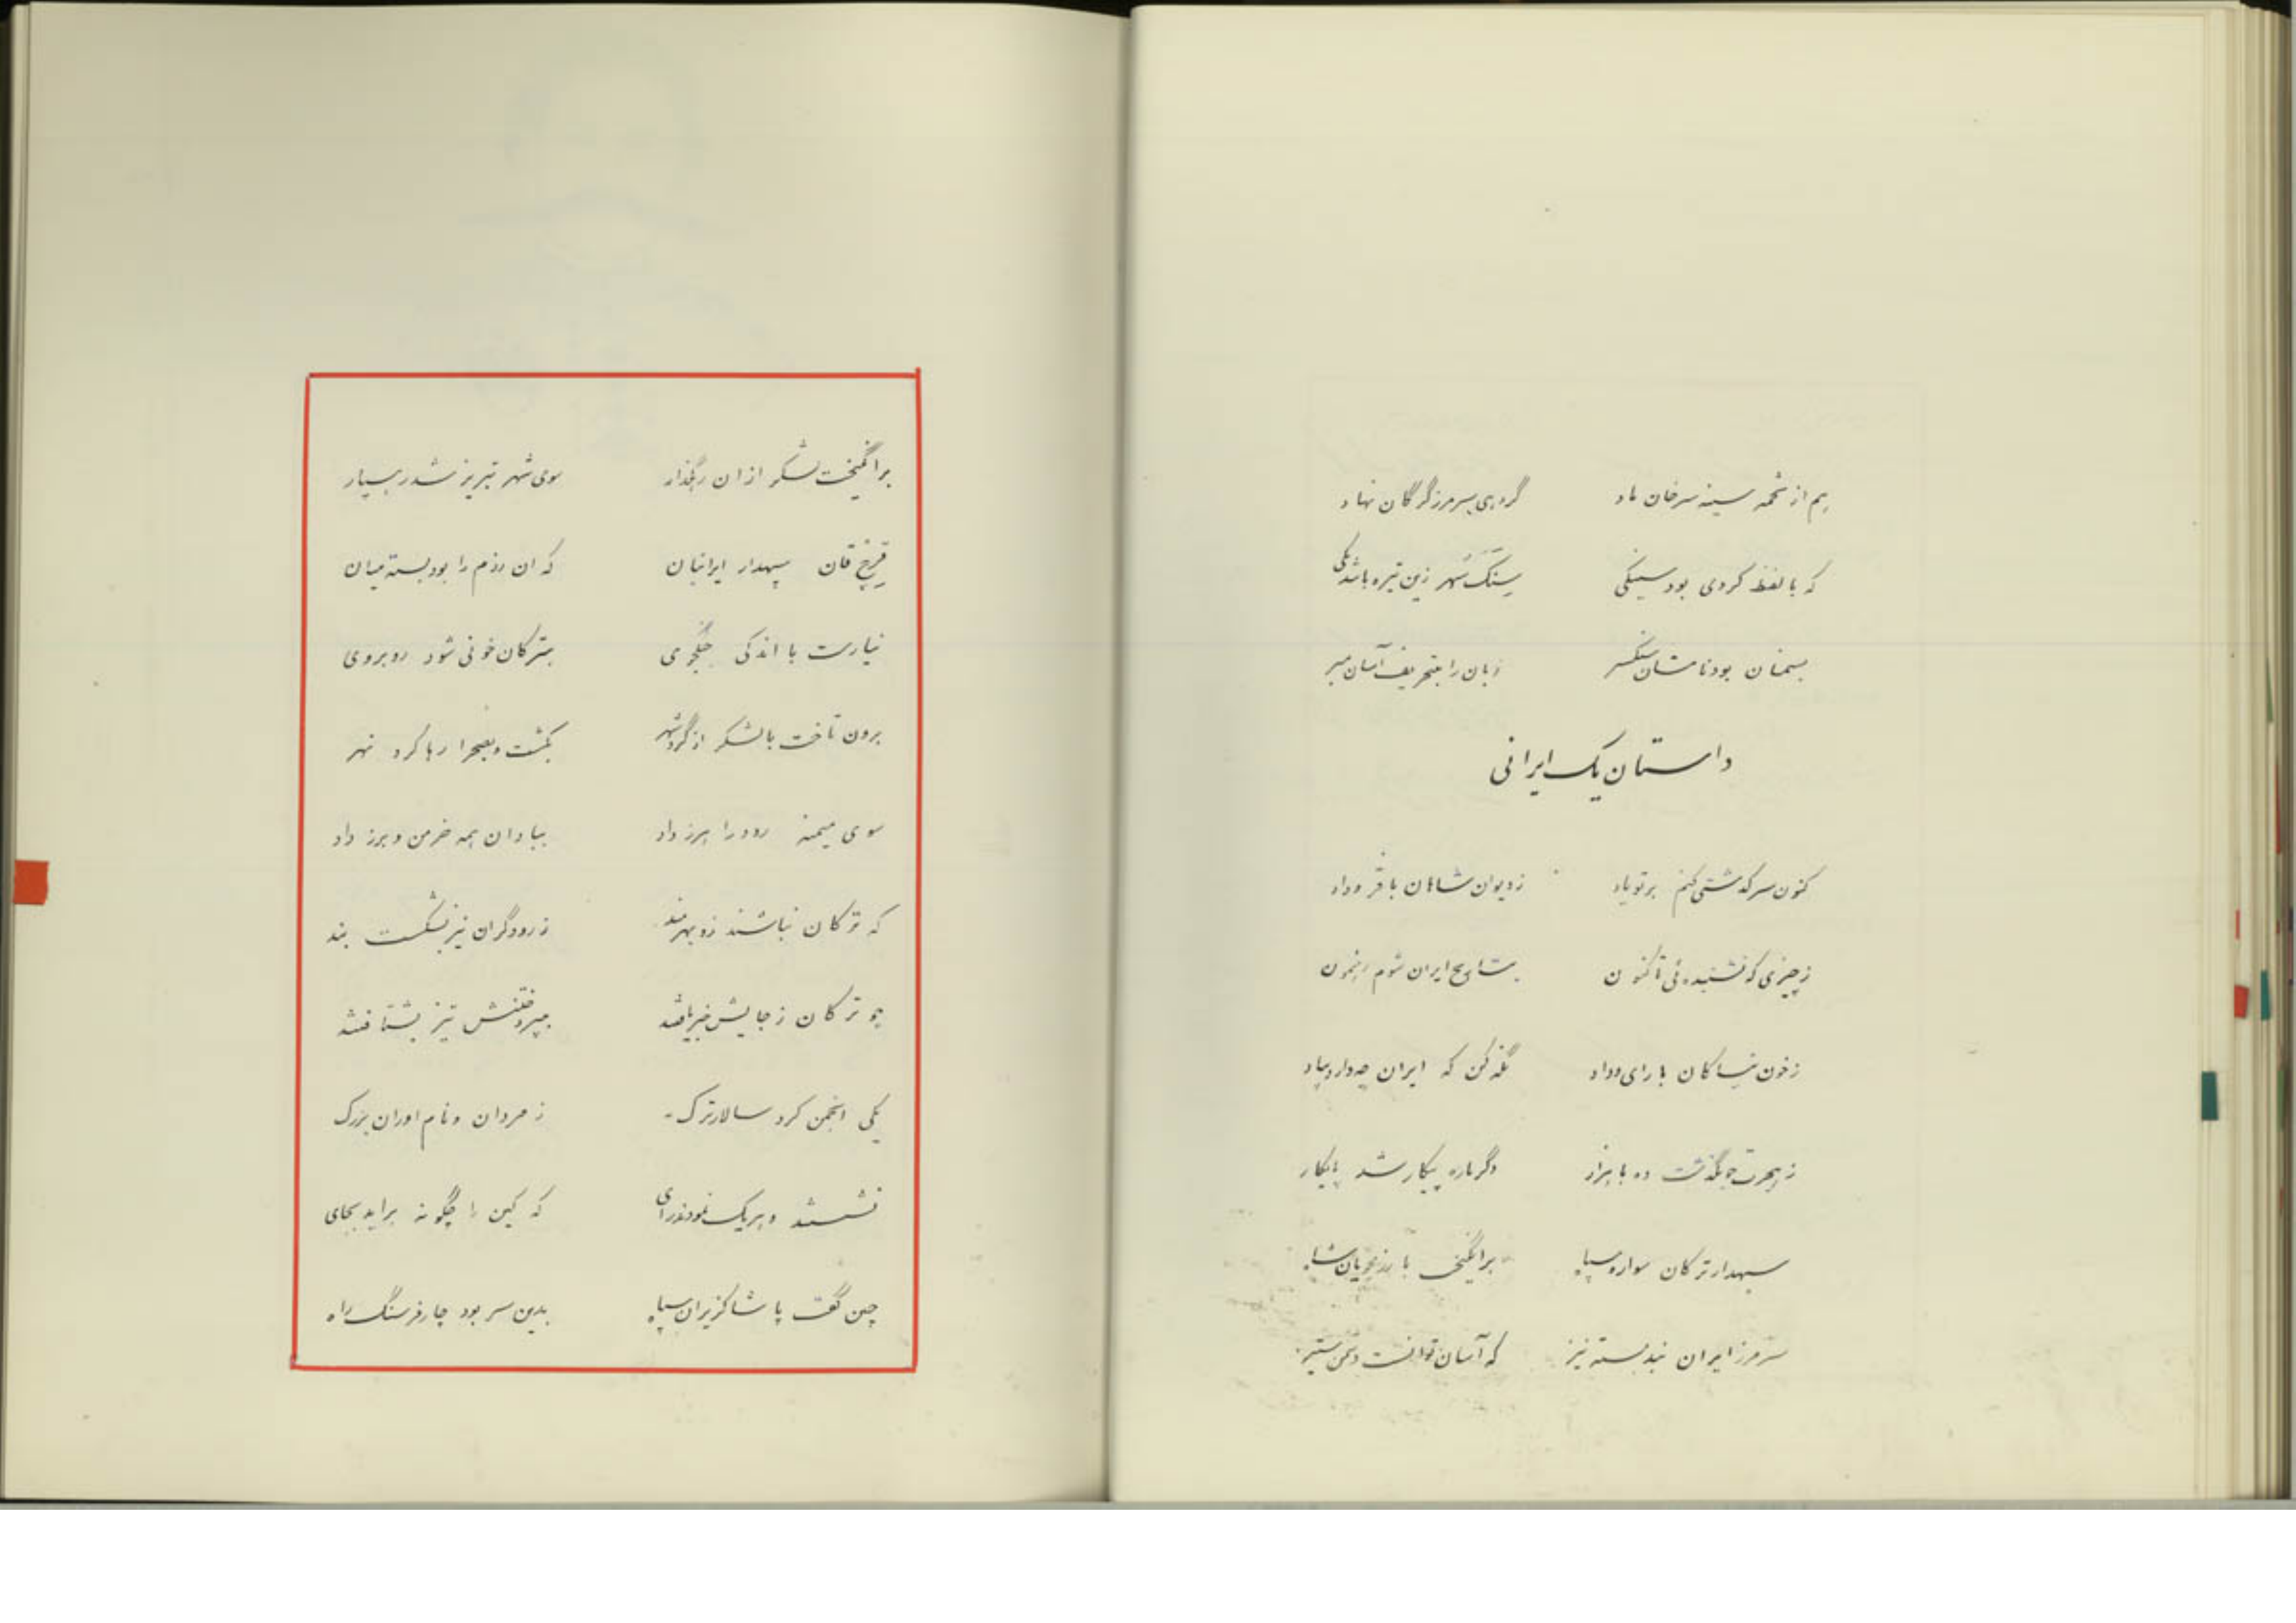 هم از تخمه سینه سرخان ماد گروهی بسر مرز گرگان نهاد
که با لفظ کردی بود سینکی بسنگ شهر زین تیره باشد یکی
بسمنان بود نامشان سنگسر زبان را بتحریف آسان مبر
داستان یک ایرانی
کنون سرگذشتی کنم بر تو یاد ز دیوان شاهان با فر و داد
ز چیزی که نشنیده‌ئی تا کنون بتاریخ ایران شوم رهنمون
ز خون نیاکان با رای و داد نگه کن که ایران چه دارد بیاد
ز هجرت چو بگذشت ده با هزار دگرباره پیکار شد پایکار
سپهدار ترکان سواره سپاه برانگیخت با رزمجویان شاه
سر مرز ایران نبد بسته نیز که آسان توانست دشمن ستیز
برانگیخت لشکر ازان رهگذار سوی شهر تبریز شد رهسپار
قرخ قان سپهدار ایرانیان که ان رزم را بود بسته میان
نیارست با اندکی جنگجوی بترکان خونی شود روبروی
برون تاخت با لشکر از گرد شهر بکشت و بصحرا رها کرد نهر
سوی میمنه رود را هرز داد بباد ان همه خرمن و برز داد
که ترکان نباشند زو بهرمند ز رودگران نیز بشکست بند
چو ترکان ز جایش خبر یافتند بپی رفتنش تیز بشتافتند
یکی انجمن کرد سالار ترک ز مردان و نام اوران بزرگ
نشستند و هریک نمودند رای که کین را چگونه براید بجای
چنین گفت پاشا کزیران سپاه بدین سر بود چار فرسنگ راه